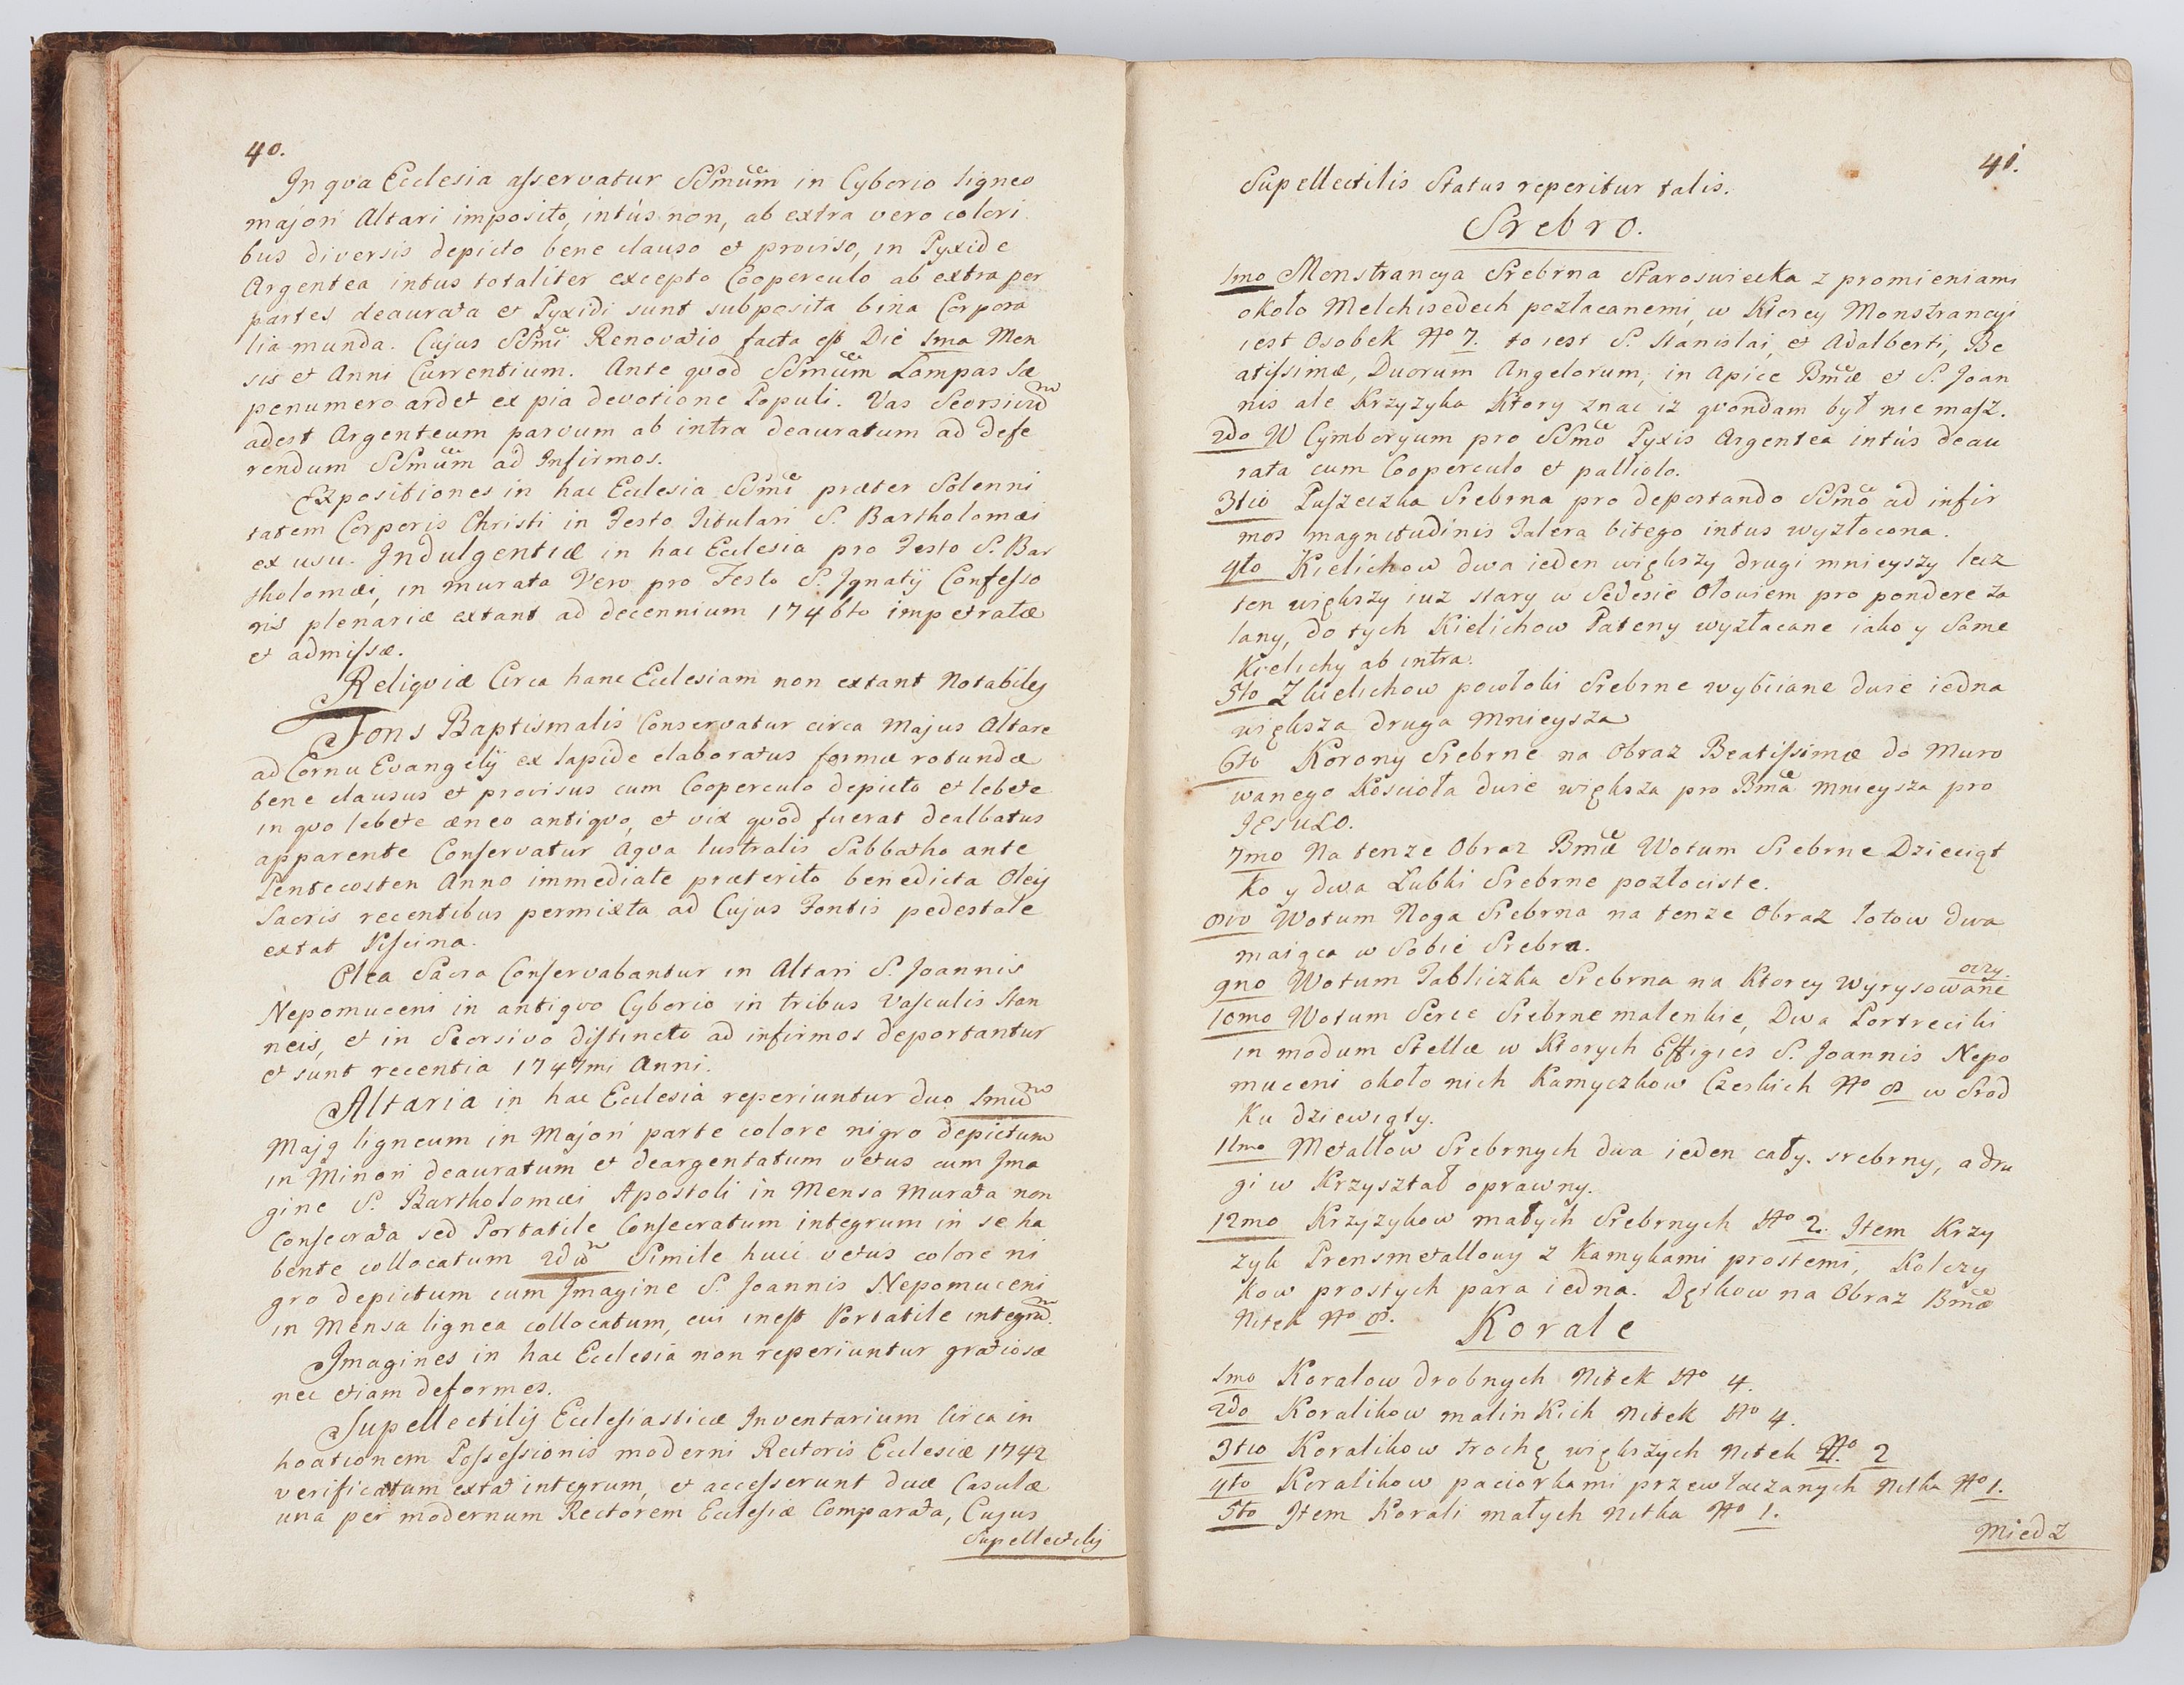 40.
In qva Ecclesia asservatur SSmum in Cyborio ligneo
majori Altari imposito, intús non, ab extra vero colori
bus diversis depicto bene clauso et proviso, in Pyxide
Argentea intus totaliter excepto Cooperculo ab extra per
partes deaurata et Pyxidi sunt subposita bina Corpora
lia munda. Cujus SSmi Renovatio facta est Die 1ma Men
sis et Anni Currentium. Ante qvod SSmum Lampas Sæ
penumero ardet ex pia devotione Populi. Vas Seorsivu
adest Argenteum parvum ab intra deauratum ad defe
rendum SSmum ad Infirmos.
Expositiones in hac Ecclesia SSmi præter Solenni
tatem Corporis Christi in Festo Titulari S. Bartholomæi
ex usu. Indulgentiæ in hac Ecclesia pro Festo S. Bar
tholomæi, in murata Vero pro Festo S. Ignatij Confesso
ris plenariæ extant ad decennium 1746to impetratæ
et admissæ.
Reliqviæ Circa hanc Ecclesiam non extant Notabiles
Fons Baptismalis Conservatur circa Majus Altare
ad Cornu Evangelij ex lapide elaboratus formæ rotundæ
bene clausus et provisus cum Cooperculo depicto et lebete
in qvo lebete æneo antiqvo, et vix qvod fuerat dealbatus
apparente Conservatur Aqva lustralis Sabbatho ante
Pentecosten Anno immediate præterito benedicta Oleis
Sacris recentibus permixta ad Cujus Fontis pedestale
extat Piscina.
Olea Sacra Conservabantur in Altari S. Joannis
Nepomuceni in antiqvo Cyborio in tribus Vasculis Stan
neis, et in Seorsivo distincto ad infirmos deportantur
et sunt recentia 1747mi Anni.
Altaria in hac Ecclesia reperiuntur duo 1mu
Majg ligneum in Majori parte colore nigro depictum
in Minori deauratum et deargentatum vetus cum Ima
gine S. Bartholomæi Apostoli in Mensa Murata non
Consecrata sed Portatile Consecratum integrum in se ha
bente collocatum 2du Simile huic vetus colore ni
gro depictum cum Imagine S. Joannis Nepomuceni
in Mensa lignea collocatum, cui inest Portatile integru.
Imagines in hac Ecclesia non reperiuntur gratiosæ
nec etiam deformes.
Supellectilis Ecclesiasticæ Inventarium Circa in
hoationem Possessionis moderni Rectoris Ecclesiæ 1742
verificatum extat integrum, et accesserunt duæ Casulæ
una per modernum Rectorem Ecclesiæ Comparata, Cujus
Supellectilis
41.
Supellectilis Status reperitur talis.
Srebro.
1mo Monstrancya Srebrna Staroswiecka z promieniami
około Melchisedech pozłacanemi, w Ktorey Monstrancyi
iest Osobek No 7. to iest S. Stanislai, et Adalberti, Be
atissimæ, Duorum Angelorum, in Apice Bmæ et S. Joan
nis ale Krzyzyka Ktory znac iz qvondam był nie masz.
2do W Cymboryum pro SSmo Pyxis Argentea intús deau
rata cum Cooperculo et palliolo.
3tio Puszeczka Srebrna pro deportando SSmo ad infir
mos magnitudinis Talera bitego intus wyzłocona.
4to Kielichow dwa ieden większy drugi mnieyszy lecz
ten większy iuz stary w Sedesie Ołowiem pro pondere za
lany, do tych Kielichow Pateny wyzłacane iako y Same
Kielichy ab intra.
5to Z kielichow powłoki Srebrne wybiiane dwie iedna
większa druga mnieysza
6to Korony Srebrne na Obraz Beatissimæ do Muro
wanego Kościoła dwie większa pro Bma mnieysza pro
JESULO.
7mo Na tenze Obraz Bmæ Wotum Srebrne Dzieciąt
ko y dwa Lubki Srebrne pozłociste.
8vo Wotum Noga Srebrna na tenze Obraz łotow dwa
maiąca w Sobie Srebra.
9no Wotum Tabliczka Srebrna na Ktorey wyrysowane oczy.
10mo Wotum Serce Srebrne malenkie, Dwa Portreciki
in modum Stellæ w Ktorych Effigies S. Joannis Nepo
muceni około nich Kamyczkow Czeskich No 8 w Srod
ku dziewiąty.
11mo Metallow Srebrnych dwa ieden cały srebrny, a dru
gi w Krzyształ oprawny.
12mo Krzyzykow małych Srebrnych No 2. Item Krzy
zyk Prensmetallowy z Kamykami prostemi, Kolczy
kow prostych para iedna. Dętkow na Obraz Bmæ
Nitek No 8.
Korale
1mo Koralow drobnych Nitek No 4.
2do Koralikow malinkich Nitek No 4.
3tio Koralikow trochę większych Nitek No 2
4to Koralikow paciorkami przewłaczanych Nitka No 1.
5to Item Korali małych Nitka No 1.
Miedz